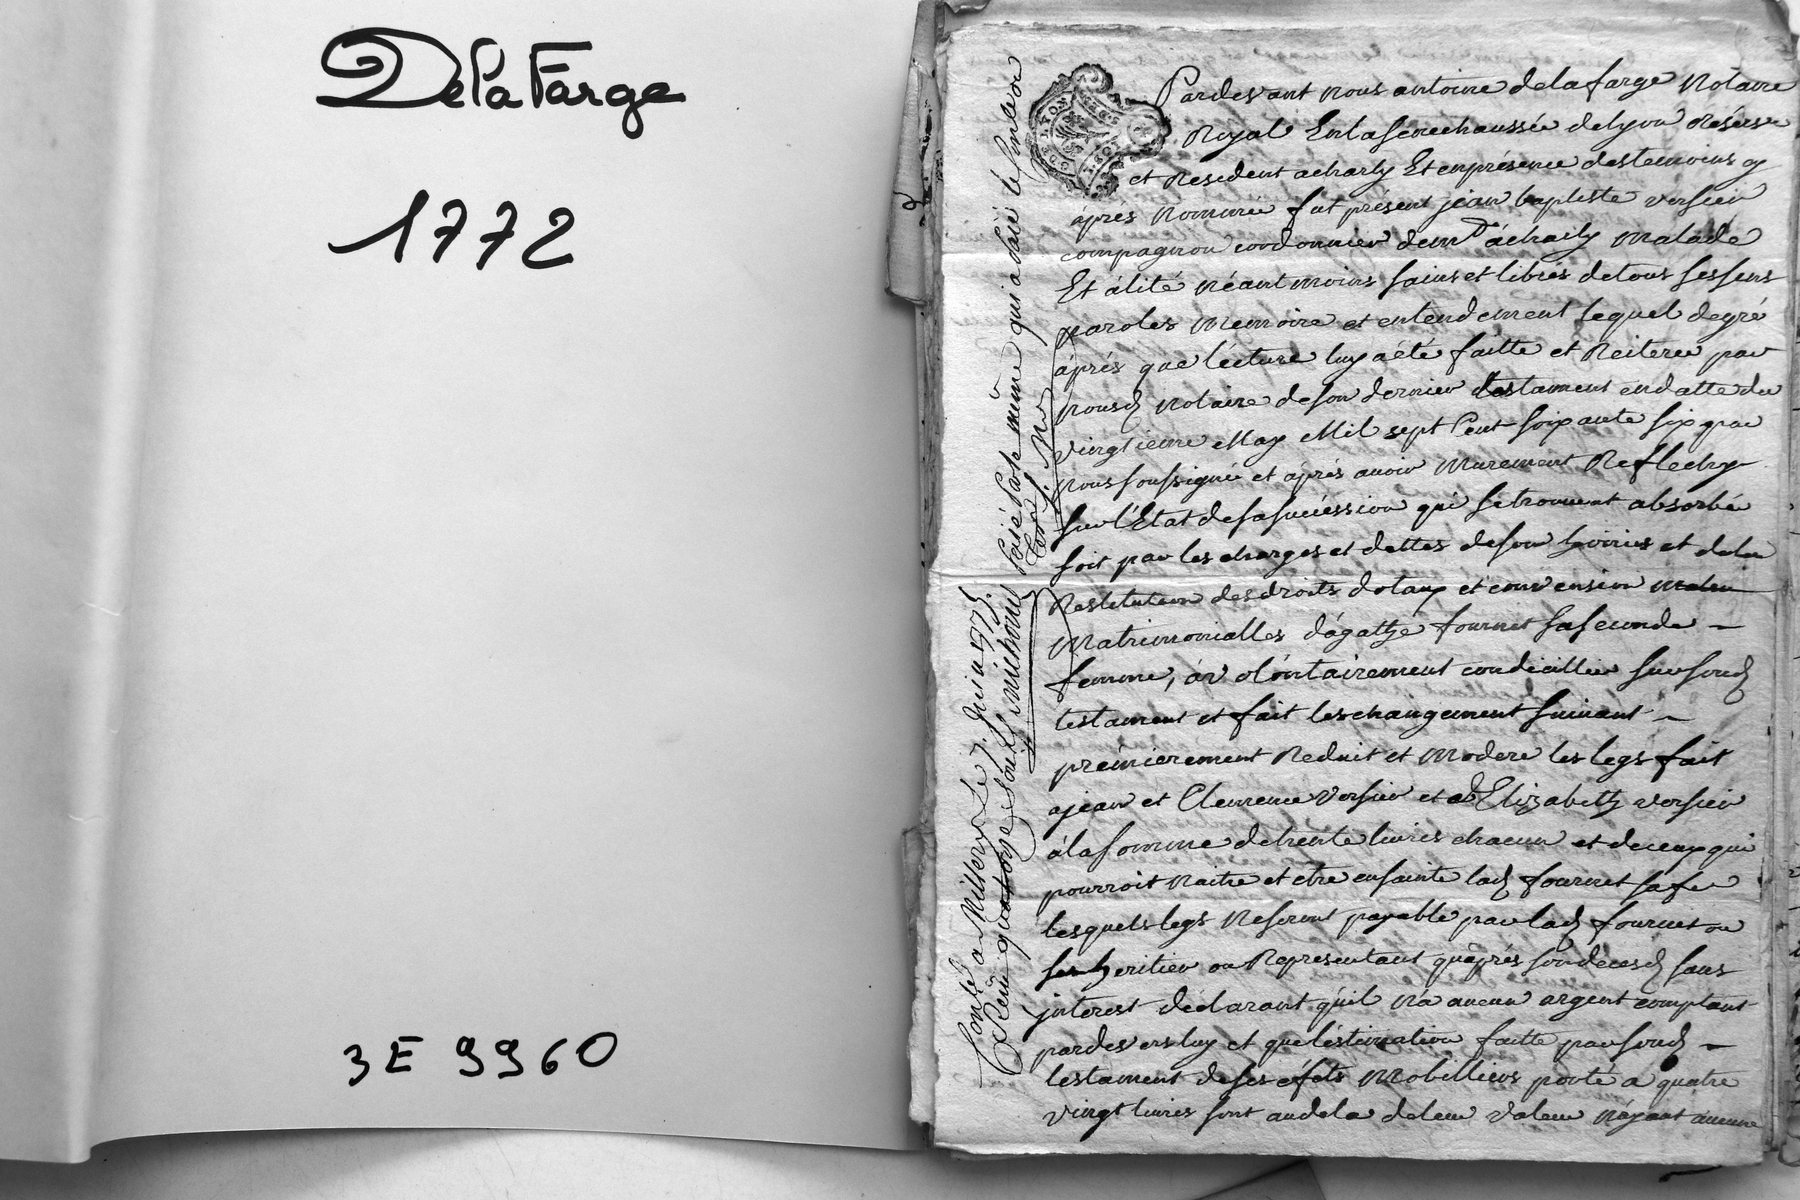 DelaFarge
1772
3 E 9960
Pardevant nous antoine delafarge Notaire
Royal Enlasenechaussée delyon Réservé
et Resident acharly Et enprésence destemoins cy
áprés Nommée fut présent jean baptiste versier
compagnon cordonnier demt ácharly Malade
Et álité Néantmoins sains et libres detous sessens
paroles Memoire et entendement lequel degré
áprés que lécture luy áeté faitte et Reiterée par
nousd Notaire deson dernier testament endatte du
vingtieme May Mil sept Cent soixante six par
nous soussigné et áprés avoir Murement Reflechy
sur l'Etat desasuccéssion qui setrouvent absorbé
soit par les charges et dettes deson hoiries et dela
Restitution desdroits dotaux et convension
Matrimonialles d'ágathe fournet saseconde
femme, áv olóntairement condicillier sursond
testament et fait leschangement suivant
prémierement Reduit et Modere les legs fait
ajean et Clemence versier et ad Elizabeth versier
álasomme detrente livres chacun et deceux qui
pourroit Naitre et etre ensainte lad fournet safe
lesquels legs Neseront payable par lad fournet ou
ses heritier ou Representant qu'aprés sondecesd sans
jnterest déclarant qu'il N'a aucun argent comptant
pardevers luy et quelestimation faitte par sond
testament deses éfets Mobilliers porté a quatre
vingt livres sont audela deleur valeur N'ayant aucune
Conlé a Millery Le 7. Juin 1773.
Reçu quatorze sous